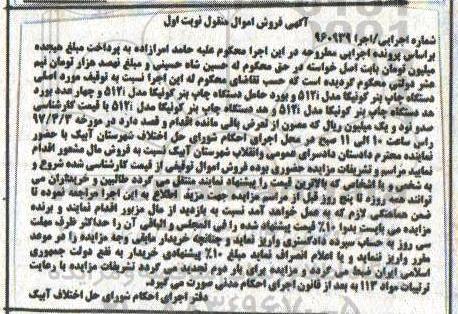 آگهی فروش اموال منقول نوبت اول
شماره اجرایی/اجرا ۹۶۰۹۳۹
براساس پرونده اجرایی مطروحه در این اجرا محکوم علیه حامد امرازاده به پرداخت مبلغ هیجده
میلیون تومان بابت اصل خواسته در حق محکوم له حسین شاه حسینی و مبلغ نهصد هزار تومان نیم
عشر دولتی محکوم گردیده است که حسب تقاضای محکوم له این اجرا نسبت به توقیف مورد اصلی
دستگاه چاپ بنر کونیکا مدل ۵۱۲i و برد حامل دستگاه چاپ بنر کونیکا مدل ۵۱۲i و چهار عدد بورد
هد دستگاه چاپ بنر کونیکا مدل ۵۱۲i و هد دستگاه چاپ بنر کونیکا مدل ۵۱۲i با قیمت کارشناسی
صدو نود و یک میلیون ریال که مصون از تعرض باقی مانده اقدام و قصد دارد در مورخه ۹۷/۳/۳
راس ساعت ۱۰ الی ۱۱ صبح در محل اجرای احکام شورای حل اختلاف شهرستان آبیک با حضور
نماینده محترم دادستان دادسرای عمومی وانقلاب شهرستان آبیک نسبت به فروش مال مشهور اقدام
نمایید مراسم و تشریفات مزایده حضوری بوده فروش اموال توقیفی از قیمت کارشناسی شده شروع و
به شخصی و یا اشخاصی که بالاترین قیمت را پیشنهاد نمایند منتقل می گردد طالبین و خریداران می
توانند همه روزه تا پنج روز قبل از مراسم مزایده جهت مزید اطلاع به این اجرا مراجعه نموده تا
ضمن هماهنگی لازم که به عمل خواهد آمد نسبت به بازدید از مال مزبور اقدام نمایند و برنده
مزایده می بایست بدوا ۱۰٪ قیمت پیشنهاد شده را فی المجلس و الباقی آن را حداکثر ظرف مهلت
سی روز به حساب سپرده دادگستری واریز نماید و چنانچه خریدار مابقی وجه مزایده را در موعد
مقرر واریز ننماید و یا اعلام انصراف نماید مبلغ ۱۰٪ پیشنهادی خریدار به نفع دولت جمهوری
اسلامی ایران ضبط می گردد و مزایده برای بار دوم تجدید می گردد تشریفات مزایده با رعایت
ترتیبات مواد ۱۱۳ به بعد از قانون اجرای احکام مدنی صورت می گیرد.
دفتر اجرای احکام شورای حل اختلاف آبیک